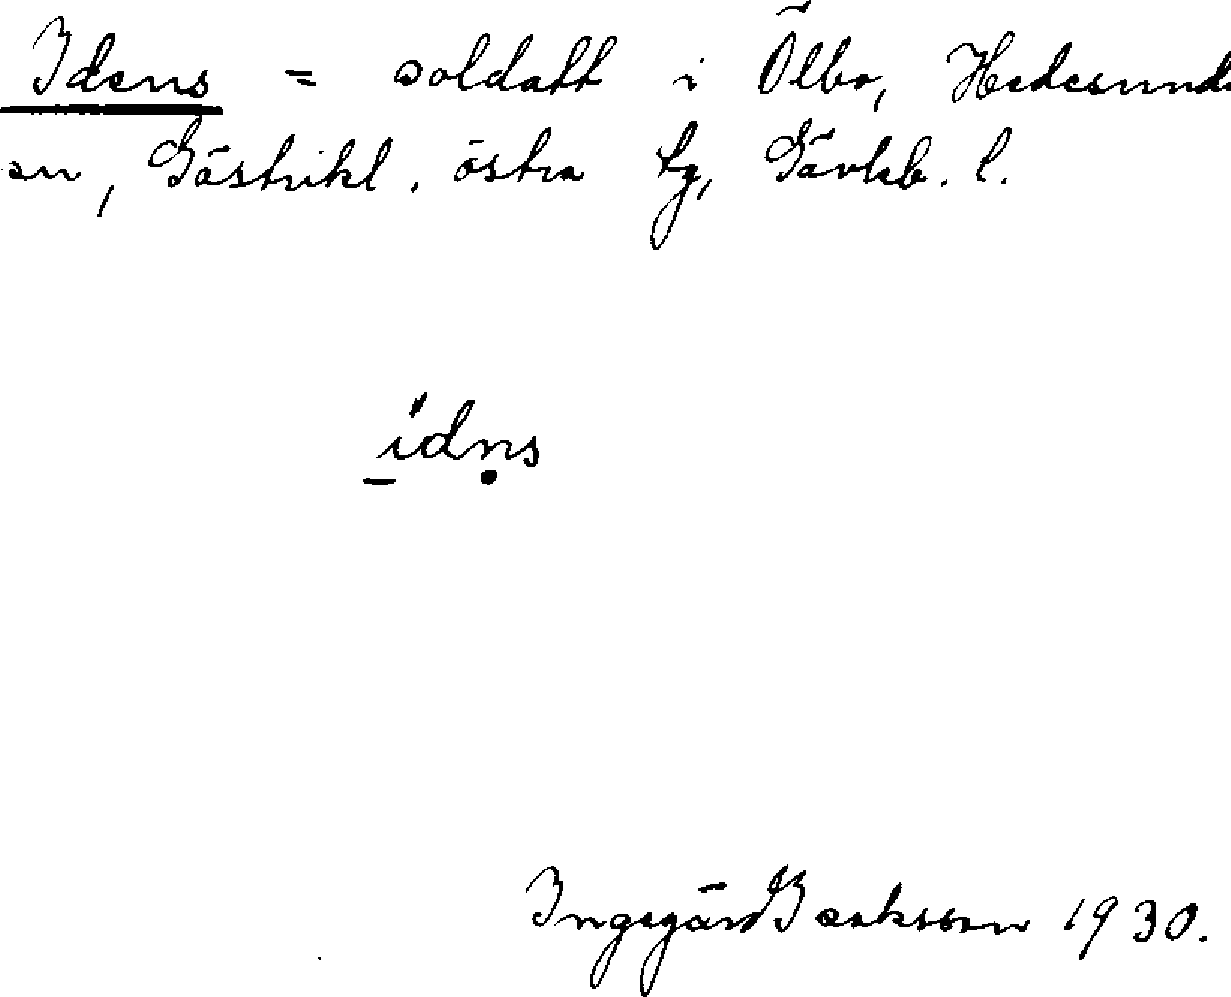 Idens = soldatt i Ölbo, Hedesunda
sn, Gästrikl. östra tg, Gävleb. l.
idṇs
Ingegärd Isaksson 1930.